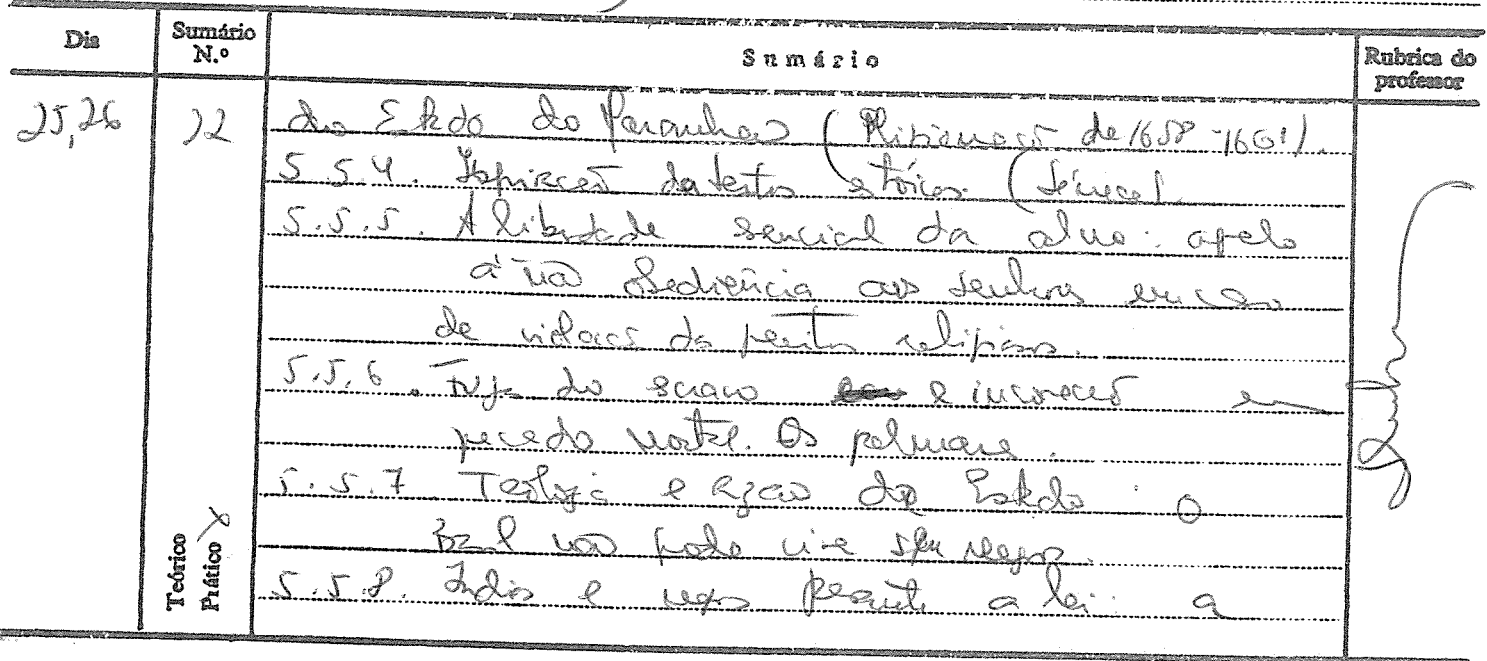 Dia
Sumário N.º
Sumário
Rubrica do professor
25,26
22
do Estado do Maranhão ( de 1658-1661).
5.5.4. Inspiração da textos estóicos. (Séneca).
5.5.5. A liberdade sencial da alma: apelo
à não obediência aos senhores em caso
de violaçs do preceitos religiosos.
5.5.6. Fuga do scravo e incorreçõ em
pecado mortal. Os palmares.
5.5.7 Teologia e Rzão do Estado: O
Brasil não pode viver sem negros.
5.5.8. Indios e negros perante a lei: a
Teórico
Prático X